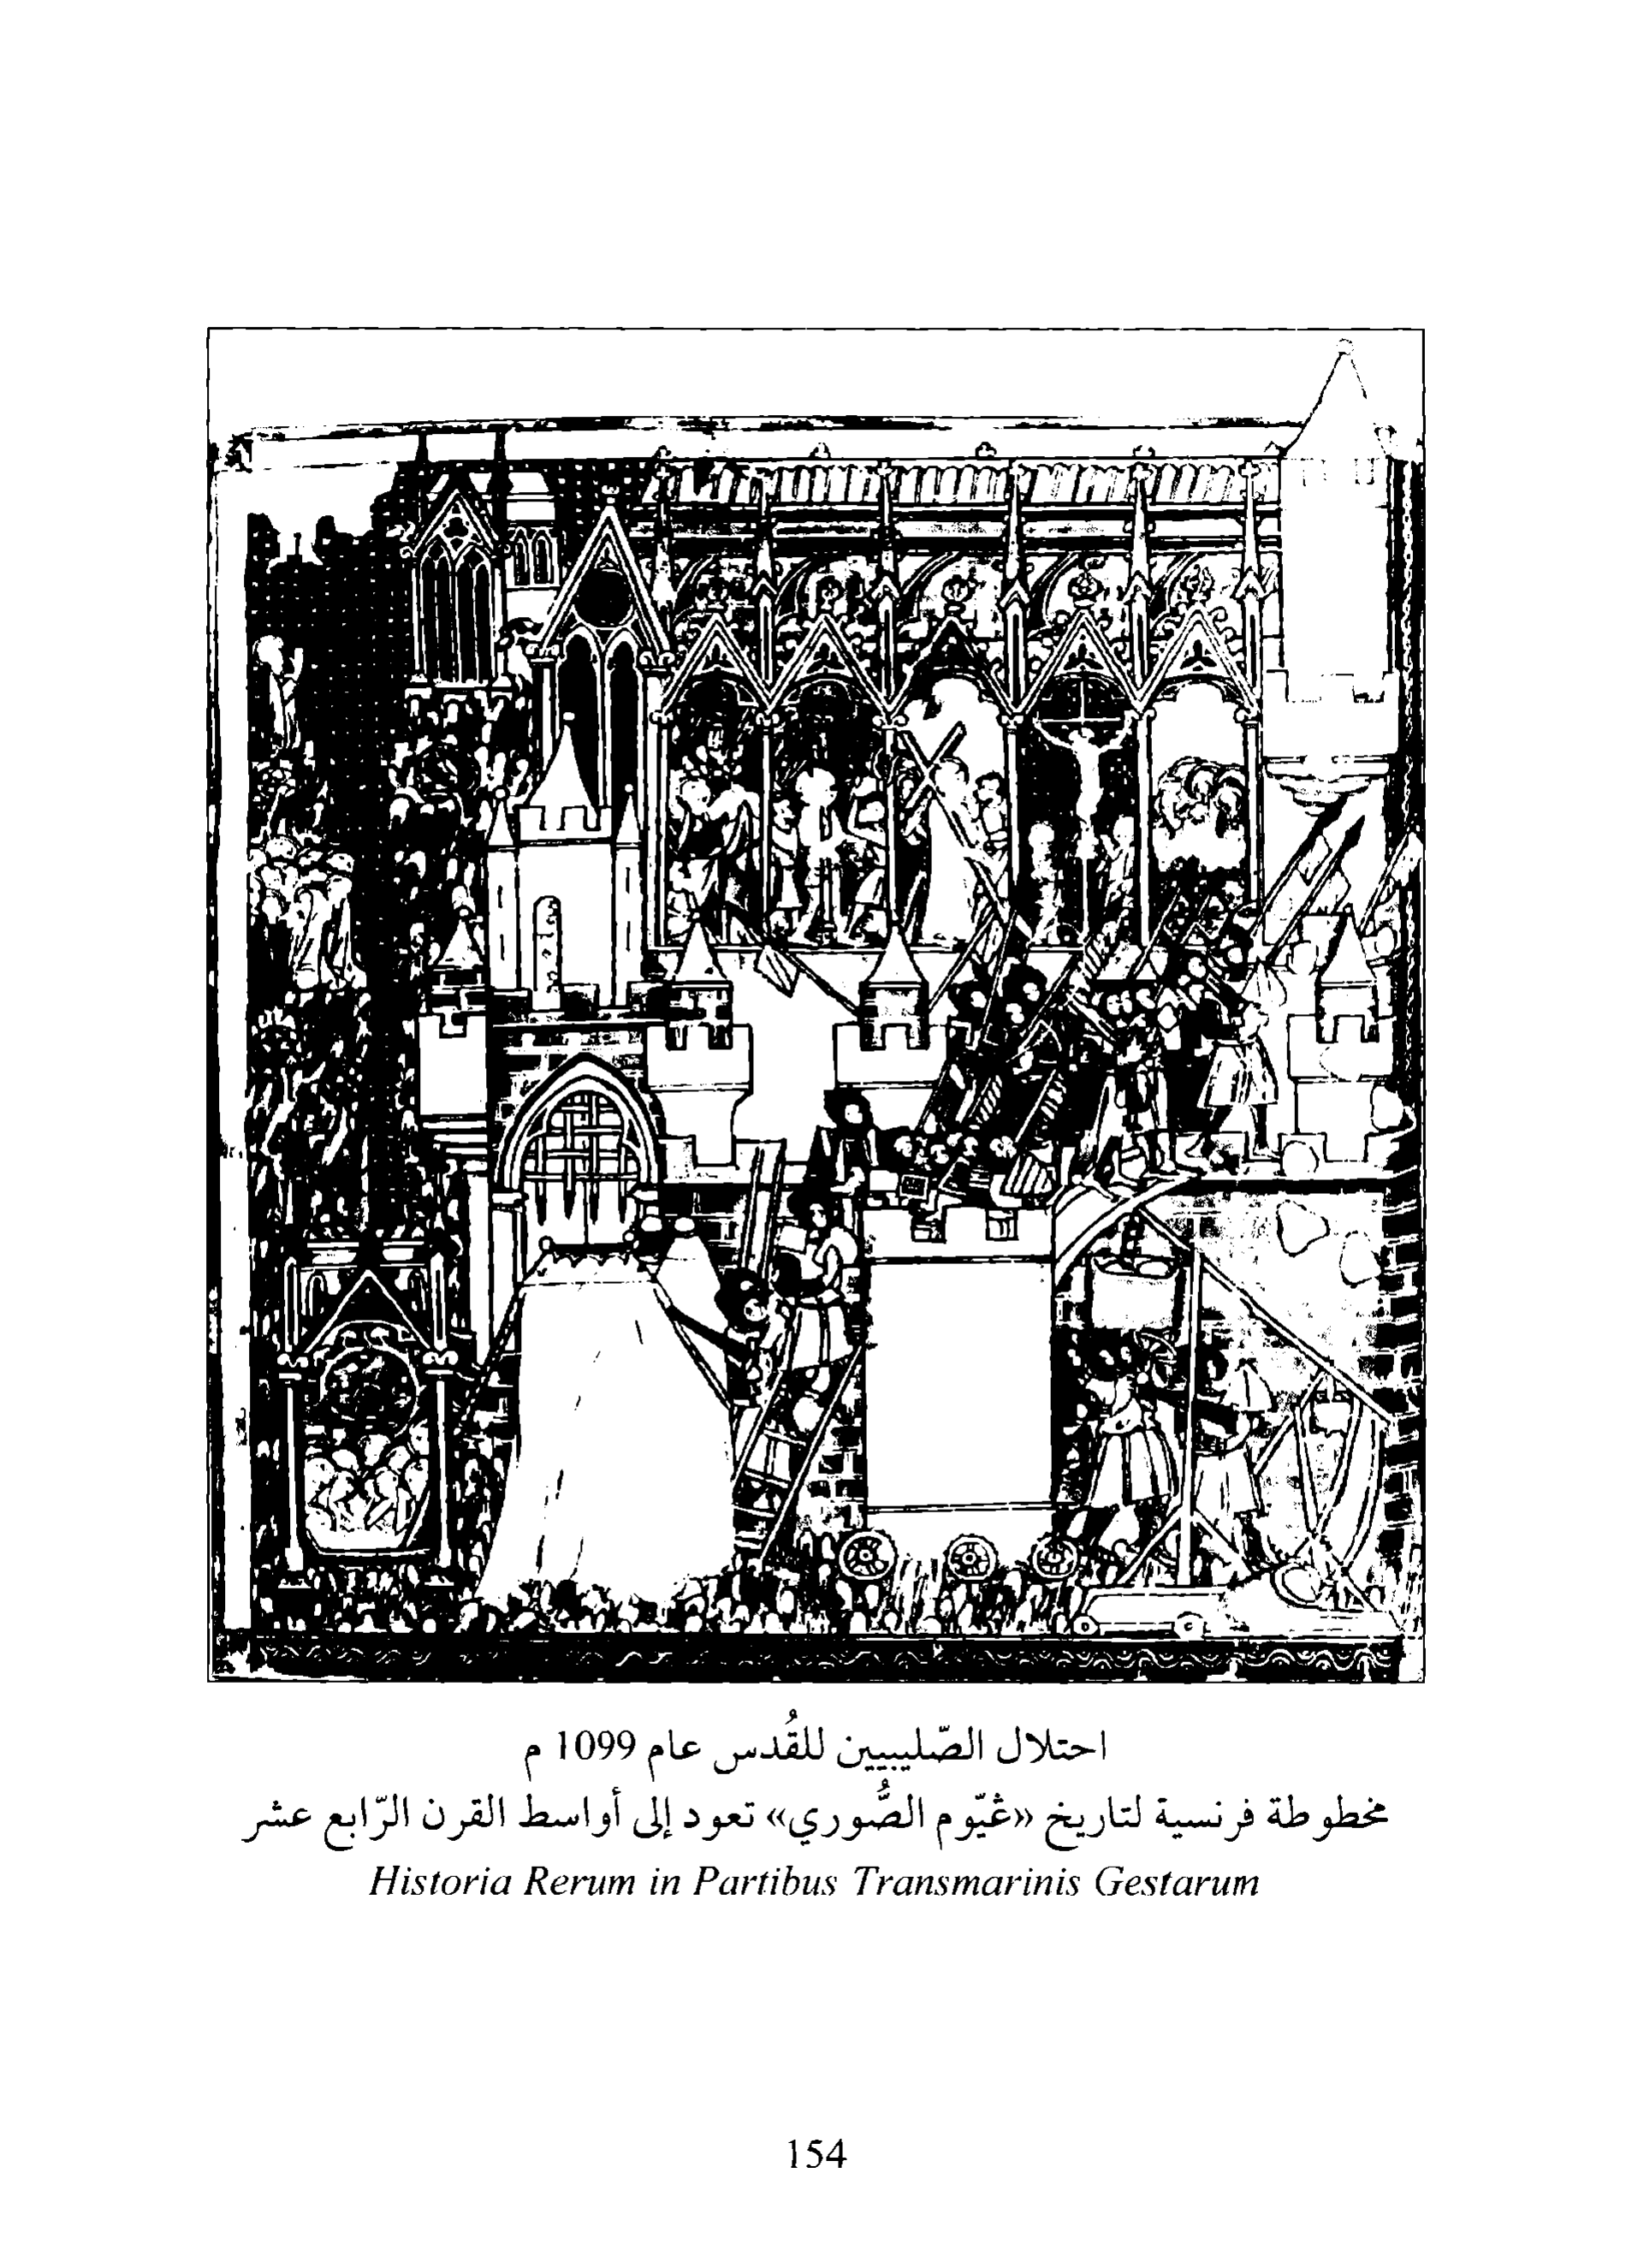 احتلال الصّليبيين للقُدس عام 1099 م
مخطوطة فرنسية لتاريخ «غيّوم الصُّوري» تعود إلى أواسط القرن الرّابع عشر
Historia Rerum in Partibus Transmarinis Gestarum
154